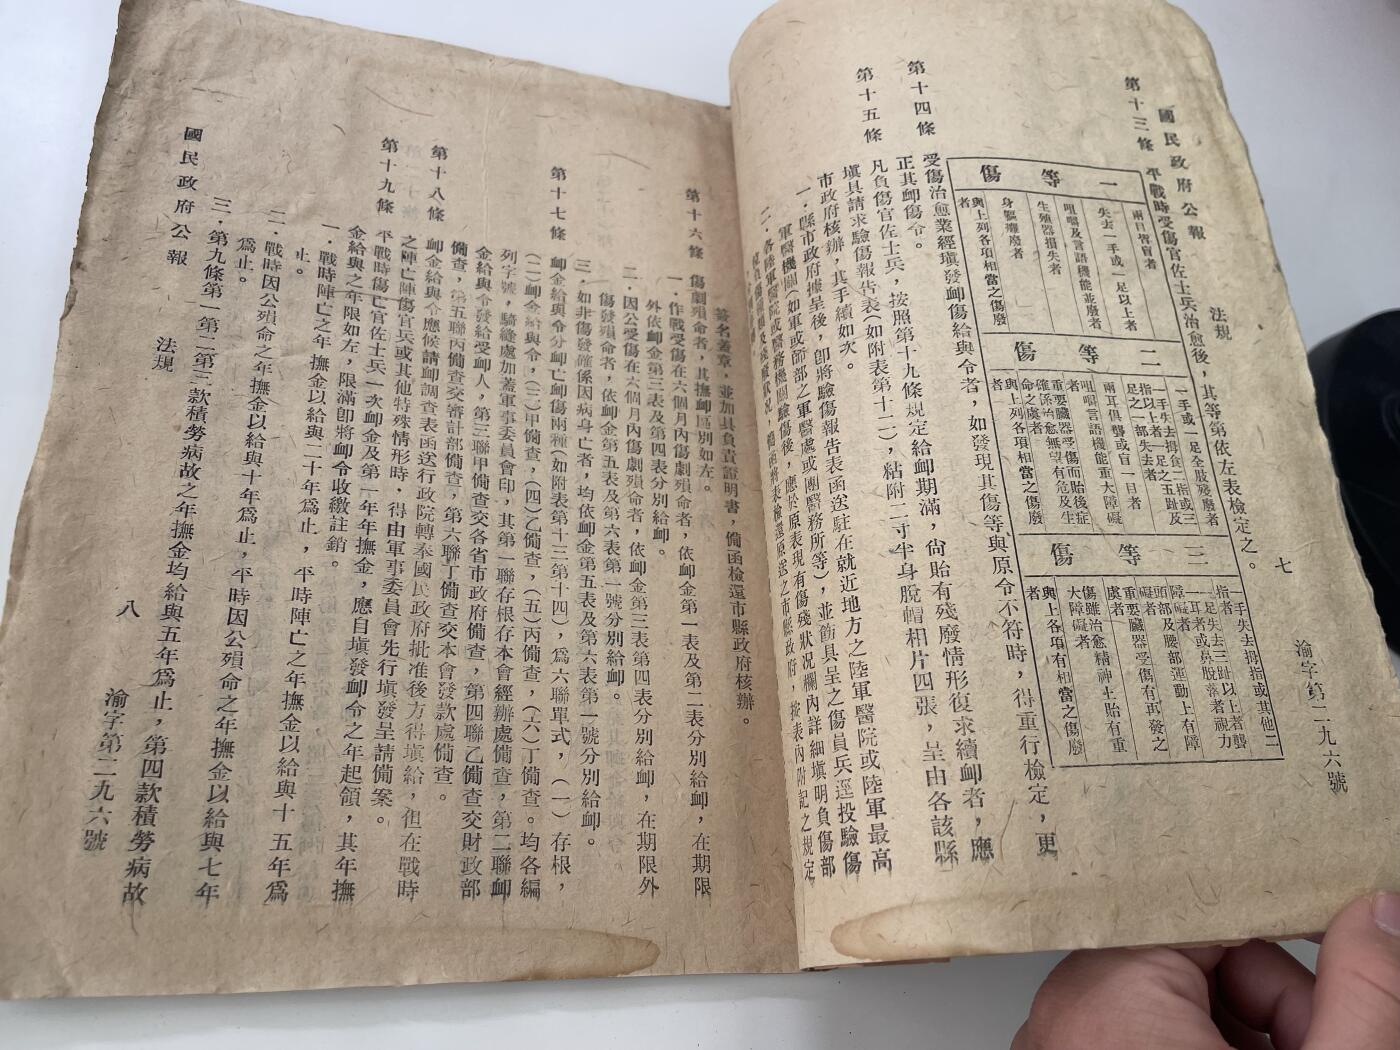 國民政府公報
法規
七
渝字第二九六號
第十三條
平戰時受傷官佐士兵治愈後，其等第依左表檢定之。
一等傷
兩目皆盲者
失去一手或一足以上者
咀嚼及言語機能並廢者
生殖器損失者
身軀癱廢者
與上列各項相當之傷廢者
二等傷
一手或一足全股殘廢者
一手失去拇食二指或三指以上者一足之五趾及足之一部失去者
兩耳俱聾或盲一目者
咀嚼言語機能重大障礙者
重要臟器受傷而貽後症確係治愈無望有危及生命之虞者
與上列各項相當之傷廢者
三等傷
一手失去拇指或其他二指者
一足失去三趾以上者聾一耳者或鼻脫落者視力障礙者
頭部及腰部運動上有障礙者
重要臟器受傷有再發之虞者
傷雖治愈精神上貽有重大障礙者
與上各項有相當之傷廢者
受傷治愈業經填發卹傷給與令者，如發現其傷等與原令不符時，得重行檢定，更
正其卹傷令。
第十四條
凡負傷官佐士兵，按照第十九條規定給卹期滿，尙貽有殘廢情形復求續卹者，應
第十五條
填具請求驗傷報告表（如附表第十二），粘附二寸半身脫帽相片四張，呈由各該縣
市政府核辦，其手續如次。
一．縣市政府據呈後，卽將驗傷報告表函送駐在就近地方之陸軍醫院或陸軍最高
軍醫機關（如軍或師部之軍醫處或團醫務所等），並飭具呈之傷員兵逕投驗傷
二．各陸軍醫院或醫務機關驗傷後，應於原表現有傷殘狀況欄內詳細填明負傷部
簽名蓋章，並加具負責證明書，備函檢還市縣政府核辦。
第十六條
傷劇殞命者，其撫卹區別如左。
一．作戰受傷在六個月內傷劇殞命者，依卹金第一表及第二表分別給卹，在期限
外依卹金第三表及第四表分別給卹。
二．因公受傷在六個月內傷劇殞命者，依卹金第三表第四表分別給卹，在期限外
傷發殞命者，依卹金第五表及第六表第一號分別給卹。
三．如非傷發確係因病身亡者，均依卹金第五表及第六表第一號分別給卹。
第十七條
卹金給與令分卹亡卹傷兩種（如附表第十三第十四），爲六聯單式，（一）存根，
（二）卹金給與令，（三）甲備查，（四）乙備查，（五）丙備查，（六）丁備查。均各編
列字號，騎縫處加蓋軍事委員會印，其第一聯存根存本會經辦處備查，第二聯卹
金給與令發給受卹人，第三聯甲備查交各省市政府備查，第四聯乙備查交財政部
備查，第五聯丙備查交審計部備查，第六聯丁備查交本會發款處備查。
第十八條
卹金給與令應候請卹調查表函送行政院轉奉國民政府批准後方得填給，但在戰時
之陣亡陣傷官兵或其他特殊情形時，得由軍事委員會先行填發呈請備案。
第十九條
平戰時傷亡官佐士兵一次卹金及第一年年撫金，應自填發卹令之年起領，其年撫
金給與之年限如左，限滿卽將卹令收繳註銷。
一．戰時陣亡之年撫金以給與二十年爲止，平時陣亡之年撫金以給與十五年爲
止。
二．戰時因公殞命之年撫金以給與十年爲止，平時因公殞命之年撫金以給與七年
爲止。
三．第九條第一第二第三款積勞病故之年撫金均給與五年爲止，第四款積勞病故
國民政府公報
法規
八
渝字第二九六號